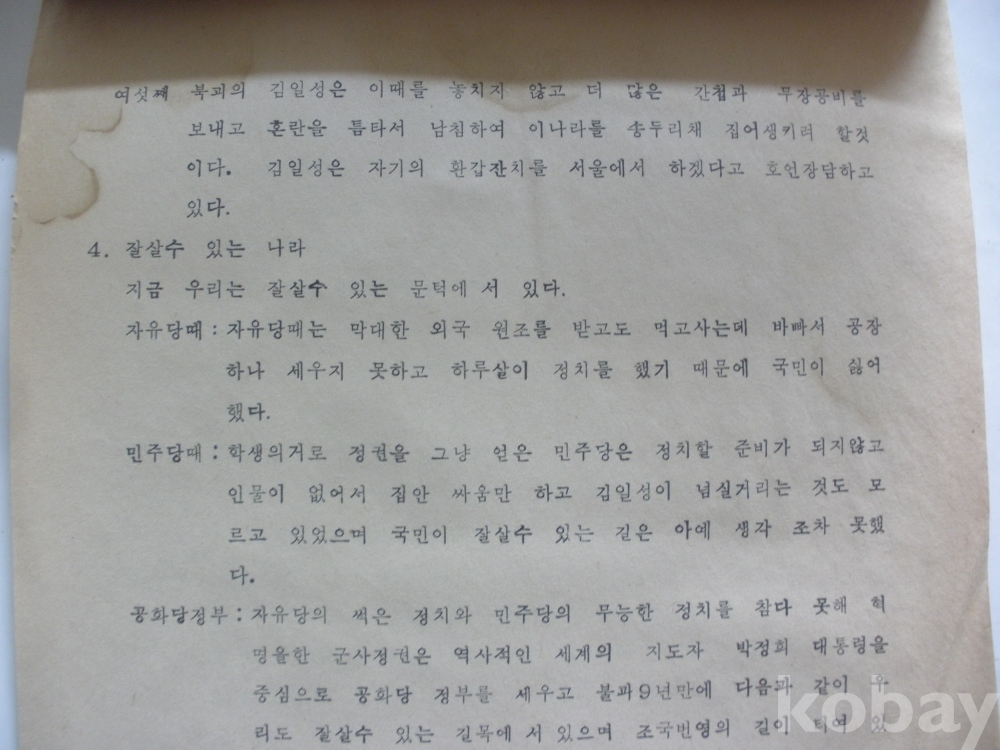 여섯째 북괴의 김일성은 이때를 놓치지 않고 더 많은 간첩과 무장공비를
보내고 혼란을 틈타서 남침하여 이나라를 송두리채 집어생키려 할것
이다. 김일성은 자기의 환갑잔치를 서울에서 하겠다고 호언장담하고
있다.
4. 잘살수 있는 나라
지금 우리는 잘살수 있는 문턱에 서 있다.
자유당때 : 자유당때는 막대한 외국 원조를 받고도 먹고사는데 바빠서 공장
하나 세우지 못하고 하루살이 정치를 했기 때문에 국민이 싫어
했다.
민주당때 : 학생의거로 정권을 그냥 얻은 민주당은 정치할 준비가 되지않고
인물이 없어서 집안 싸움만 하고 김일성이 넘실거리는 것도 모
르고 있었으며 국민이 잘살수 있는 길은 아예 생각 조차 못했
다.
공화당정부 : 자유당의 썩은 정치와 민주당의 무능한 정치를 참다 못해 혁
명을한 군사정권은 역사적인 세계의 지도자 박정희 대통령을
중심으로 공화당 정부를 세우고 불과9년만에 다음과 같이 우
리도 잘살수 있는 길목에 서있으며 조국번영의 길이 티여 있
kobay